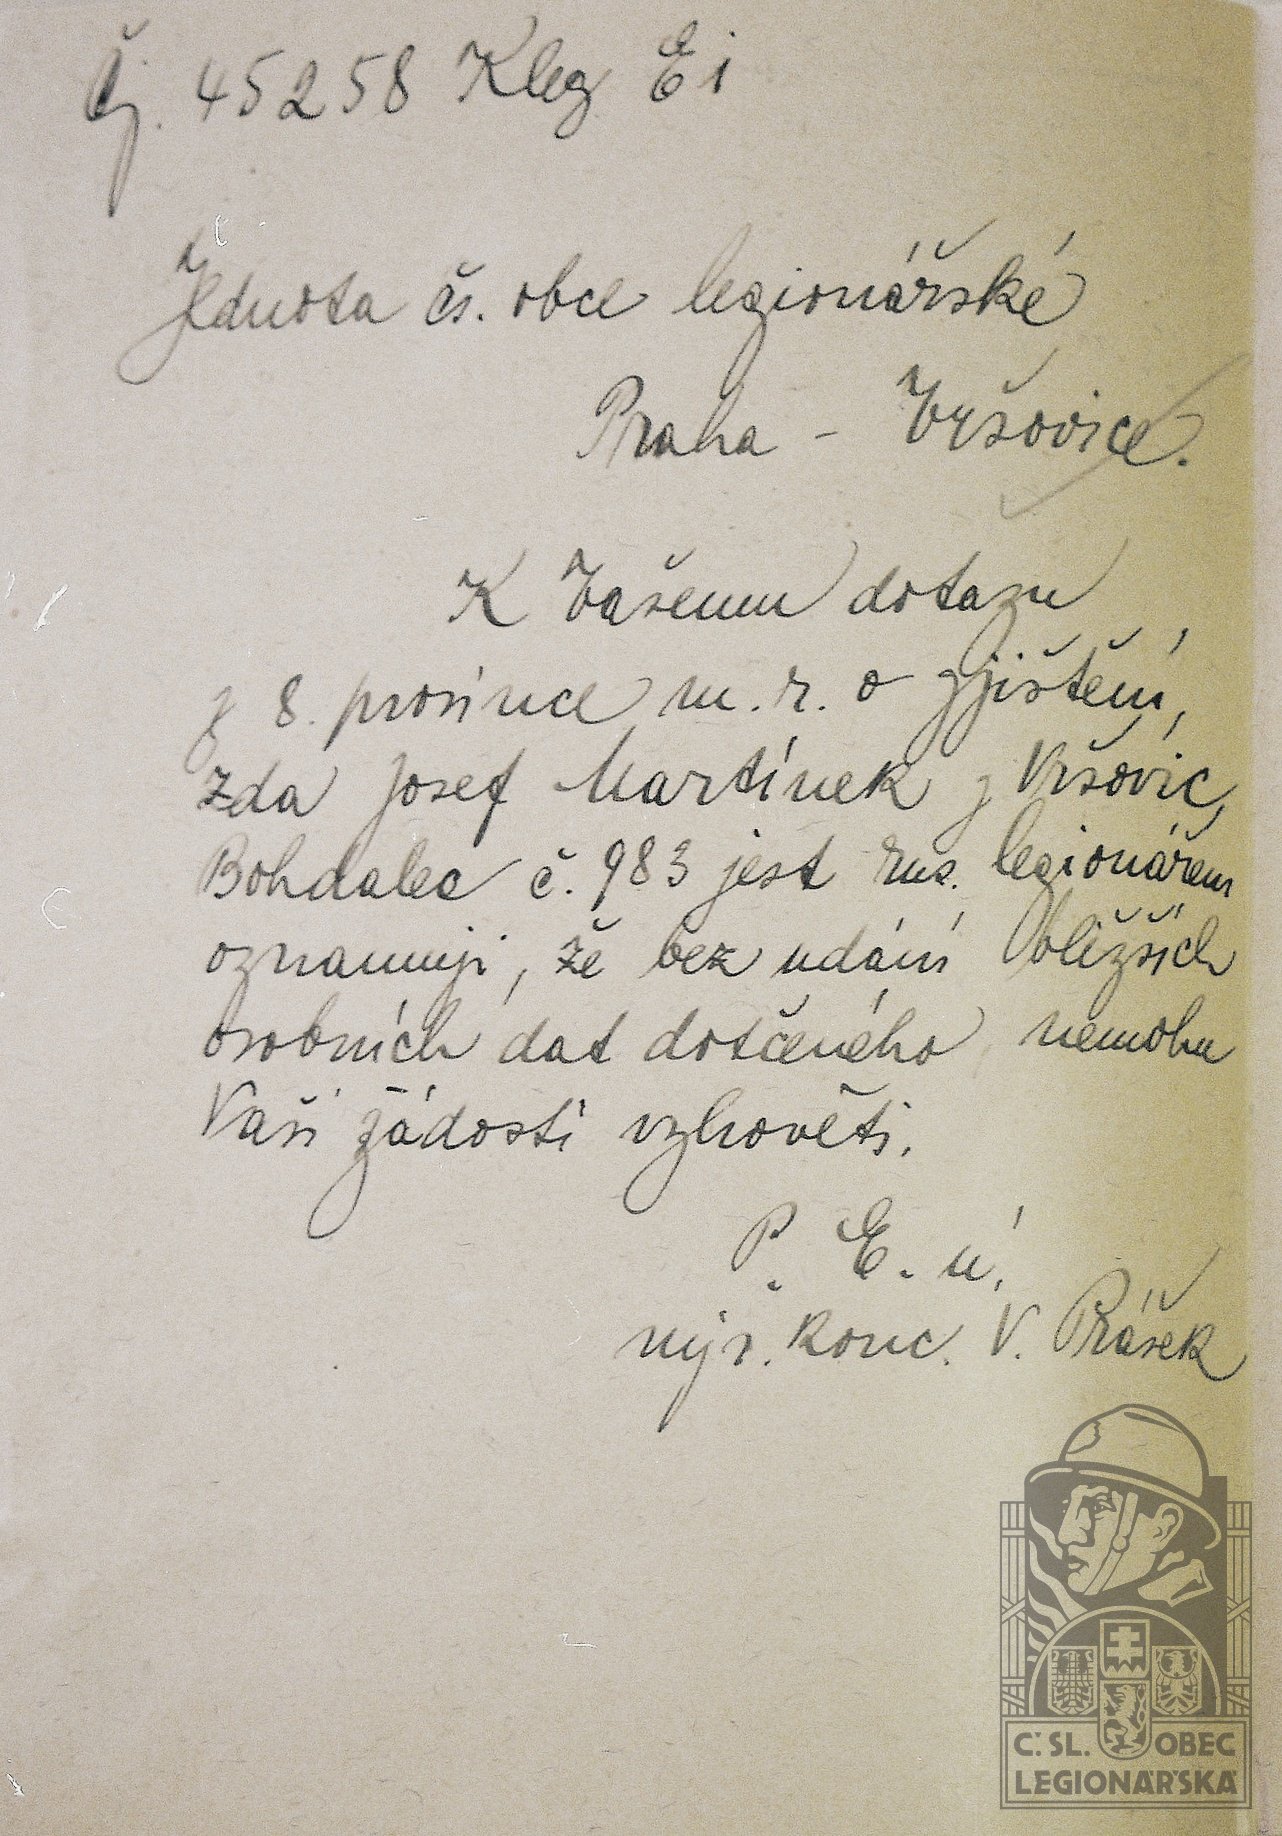 Čj. 45258 Kleg Ei
Jednota čs. obce legionářské
Praha - Vršovice.
K Vašemu dotazu
z 8. prosince m. r. o zjištění,
zda Josef Martínek z Vršovic,
Bohdalec č. 983 jest rus. legionářem
oznamuji, že bez udání bližších
osobních dat dotčeného nemohu
Vaší žádosti vzhověti.
P. E. ú.
konc. V. Prášek
Č. SL. OBEC
LEGIONÁŘSKÁ